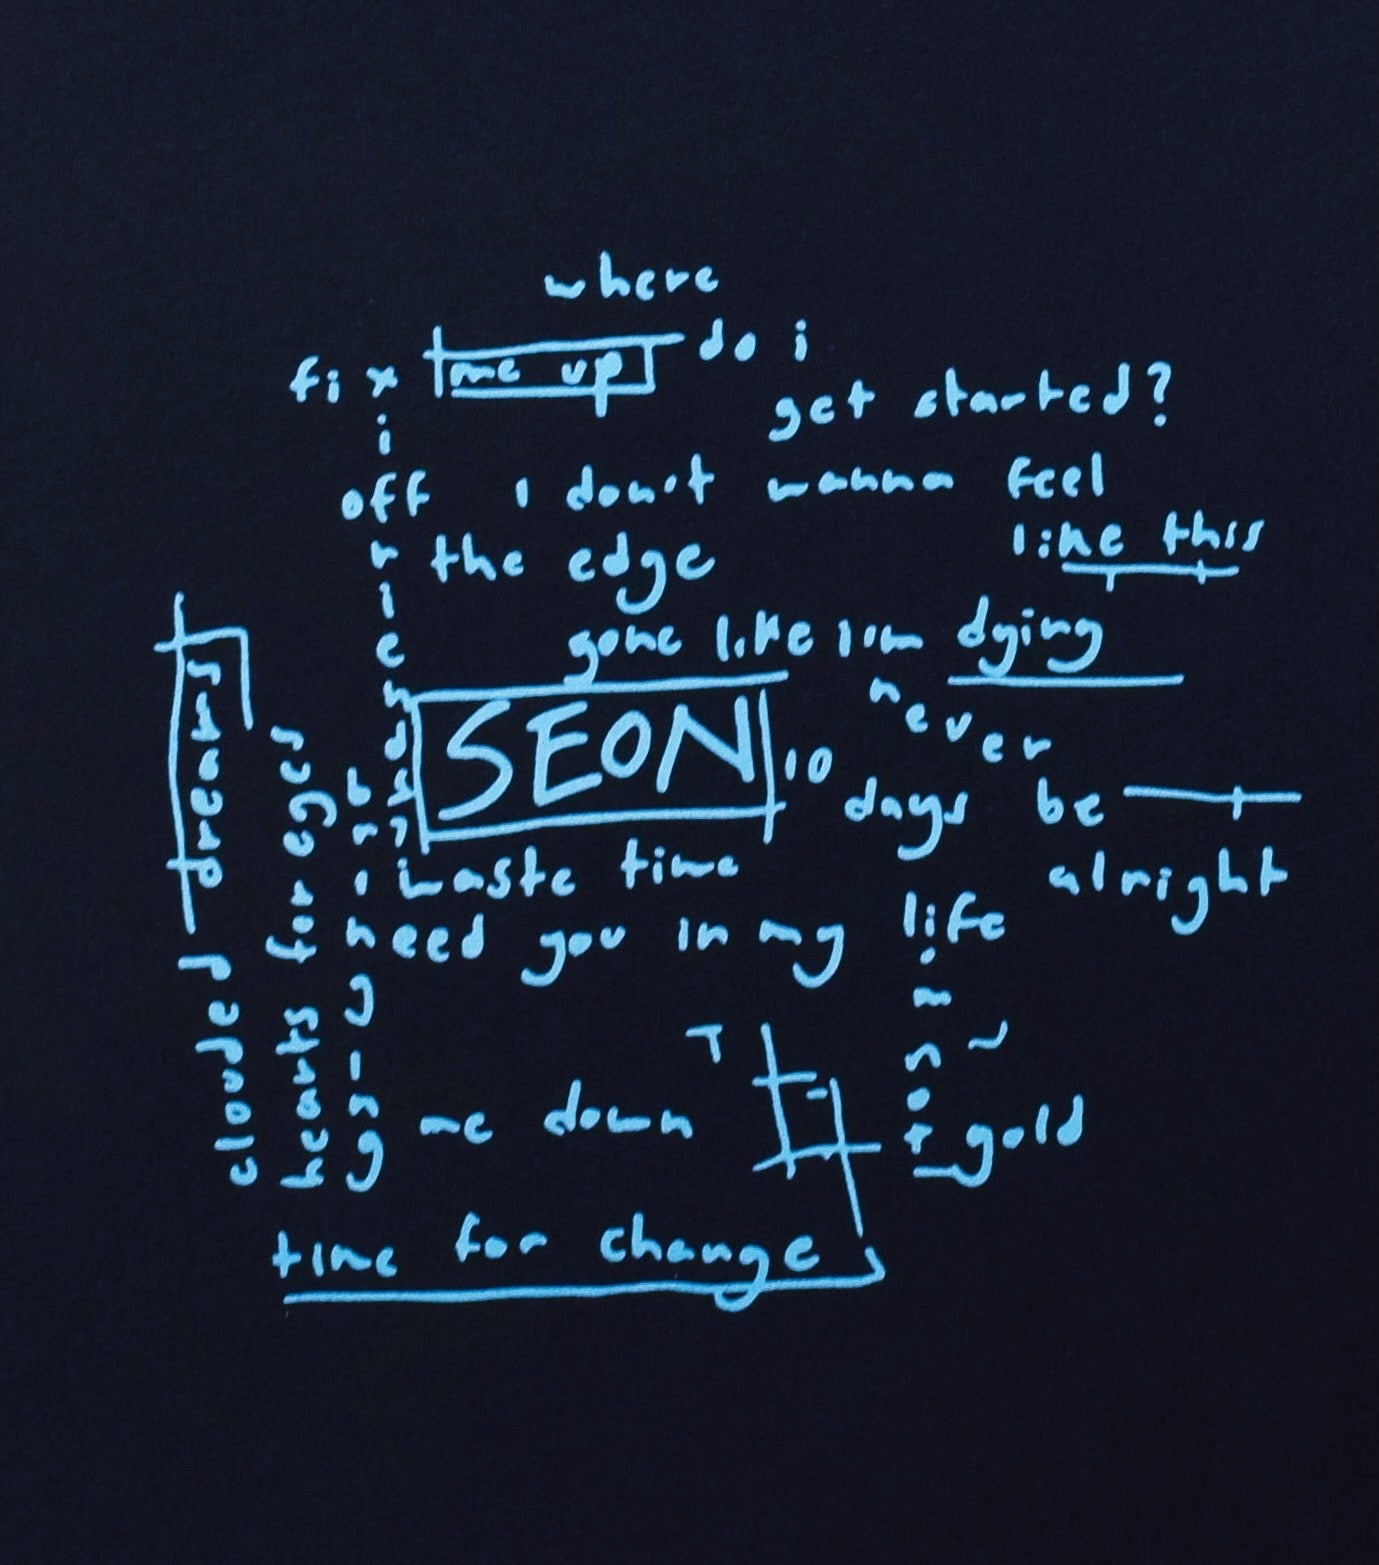 where
do i
fix me up
get started?
off i don't wanna feel
like this
the edge
gone like i'm dying
SEON
never
10 days
be
alright
waste time
need you in my life
almost
me down
gold
time for change
cloud dreams
hearts for eges
bringing